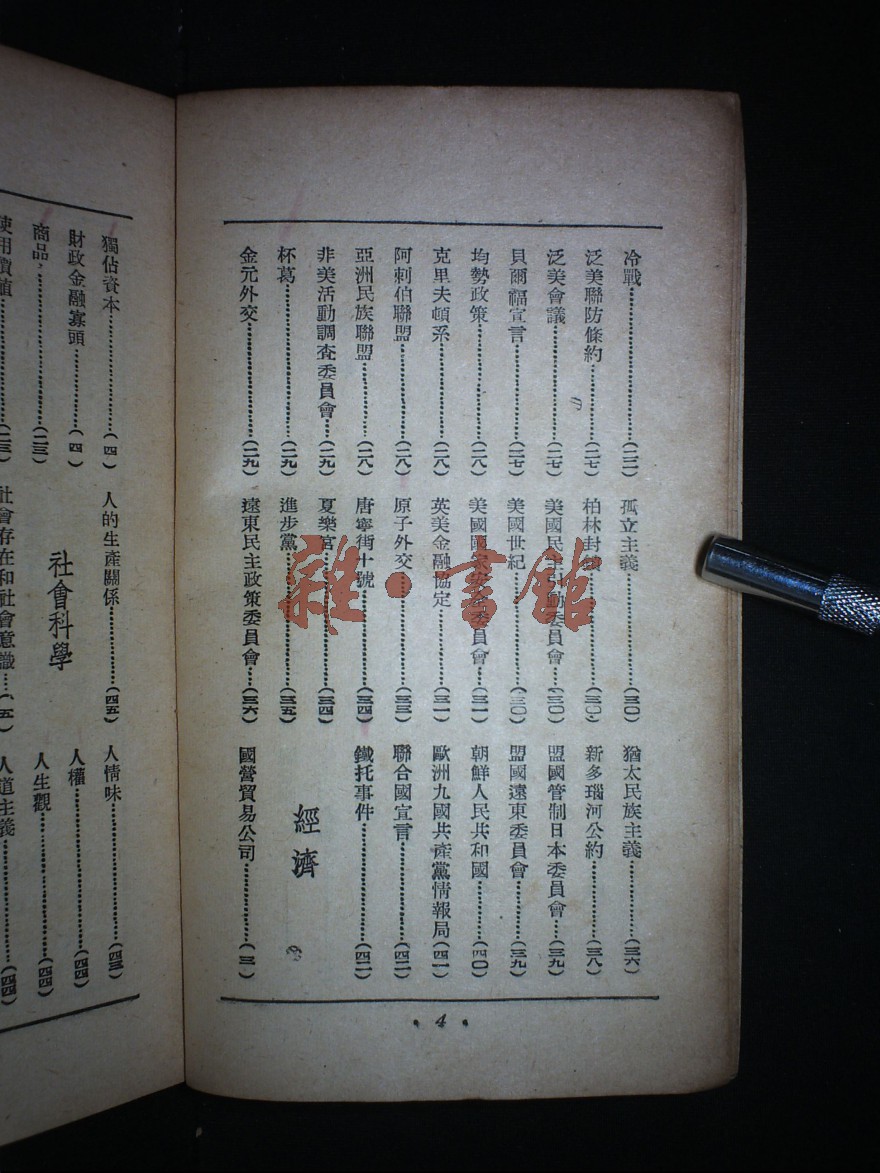 冷戰……………………(二二)
泛美聯防條約……………(二七)
泛美會議…………………(二七)
貝爾福宣言………………(二七)
均勢政策…………………(二八)
克里夫頓系………………(二八)
阿刺伯聯盟………………(二八)
亞洲民族聯盟……………(二八)
非美活動調查委員會……(二九)
杯葛………………………(二九)
金元外交…………………(二九)
孤立主義…………………(三〇)
柏林封鎖…………………(三〇)
美國民主行動委員會……(三〇)
美國世紀…………………(三〇)
美國國家安全委員會……(三一)
英美金融協定……………(三一)
原子外交…………………(三三)
唐寧街十號………………(三四)
夏樂宮……………………(三四)
進步黨……………………(三五)
遠東民主政策委員會……(三六)
猶太民族主義……………(三六)
新多瑙河公約……………(三八)
盟國管制日本委員會……(三九)
盟國遠東委員會…………(三九)
朝鮮人民共和國…………(四〇)
歐洲九國共產黨情報局(四一)
聯合國宣言………………(四二)
鐵托事件…………………(四二)
經濟
國營貿易公司……………(三)
• 4 •
獨佔資本…………………(四)
財政金融寡頭……………(四)
商品………………………(二三)
使用價值…………………(二三)
人的生產關係……………(四五)
社會科學
社會存在和社會意識…(一五)
人情味……………………(四三)
人權………………………(四四)
人生觀……………………(四四)
人道主義…………………(四四)
雜·書館